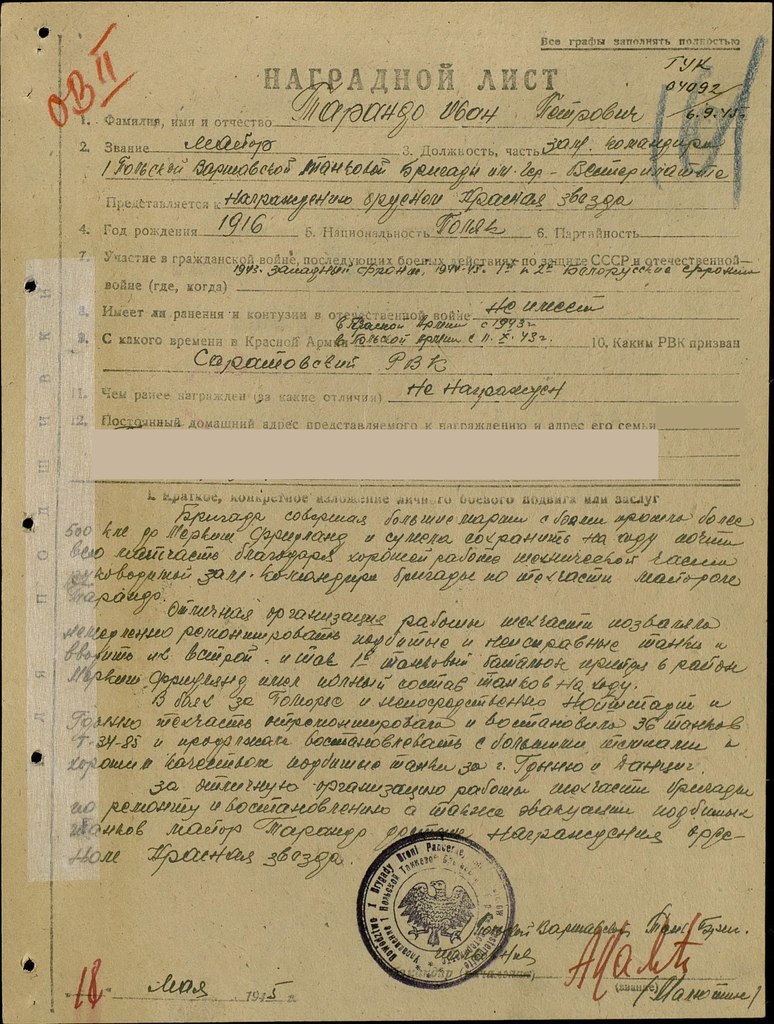 Все графы заполнять полностью
ОВ II
НАГРАДНОЙ ЛИСТ
ГУК
04092
6.9.45
1. Фамилия, имя и отчество Тарандо Иван Петрович
2. Звание майор 3. Должность, часть зам. командира
1 Польской Варшавской танковой бригады им. Гер. Вестерплатте
Представляется к награждению орденом Красная звезда
4. Год рождения 1916 5. Национальность Поляк 6. Партийность
7. Участие в гражданской войне, последующих боевых действиях по защите СССР и отечественной
1943. западный фронт, 1944-45. 1й и 2й Белорусские фронты
войне (где, когда)
8. Имеет ли ранения и контузии в отечественной войне Не имеет
в Красной Армии с 1943г
9. С какого времени в Красной Армии в Польской армии с 11.X.43г. 10. Каким РВК призван
Саратовский РВК
11. Чем ранее награжден (за какие отличия) Не награжден
12. Постоянный домашний адрес представляемого к награждению и адрес его семьи
I. Краткое, конкретное изложение личного боевого подвига или заслуг
Бригада совершая большие марши с боями прошла более
500 км до Меркиш Фридланд и сумела сохранить на ходу почти
всю матчасть благодаря хорошей работе технической части
руководимой зам. командира бригады по техчасти майором
Тарандо.
Отличная организация работы техчасти позволяла
немедленно ремонтировать подбитые и неисправные танки и
вводить их в строй. и так 1й танковый батальон прибыл в район
Меркиш Фридлянд имел полный состав танков на ходу.
В боях за Поморье и непосредственно Нойштадт и
Гдыню техчасть отремонтировала и востановила 36 танков
Т-34-85 и продолжала востановлевать с большими темпами и
хорошим качеством подбитые танки за г. Гдыню и Данциг.
За отличную организацию работы техчасти бригады
по ремонту и востановлению а также эвакуации подбитых
танков майор Тарандо достоин награждения орде-
ном Красная звезда.
Dowództwo 1 Brygady Broni Pancernej
Управление 1 Польской Танковой
Варшавской Танк. Бриг.
Командир (начальник)
(звание)
(Малютин)
18 мая 1945 г.
ДЛЯ ПОДШИВКИ